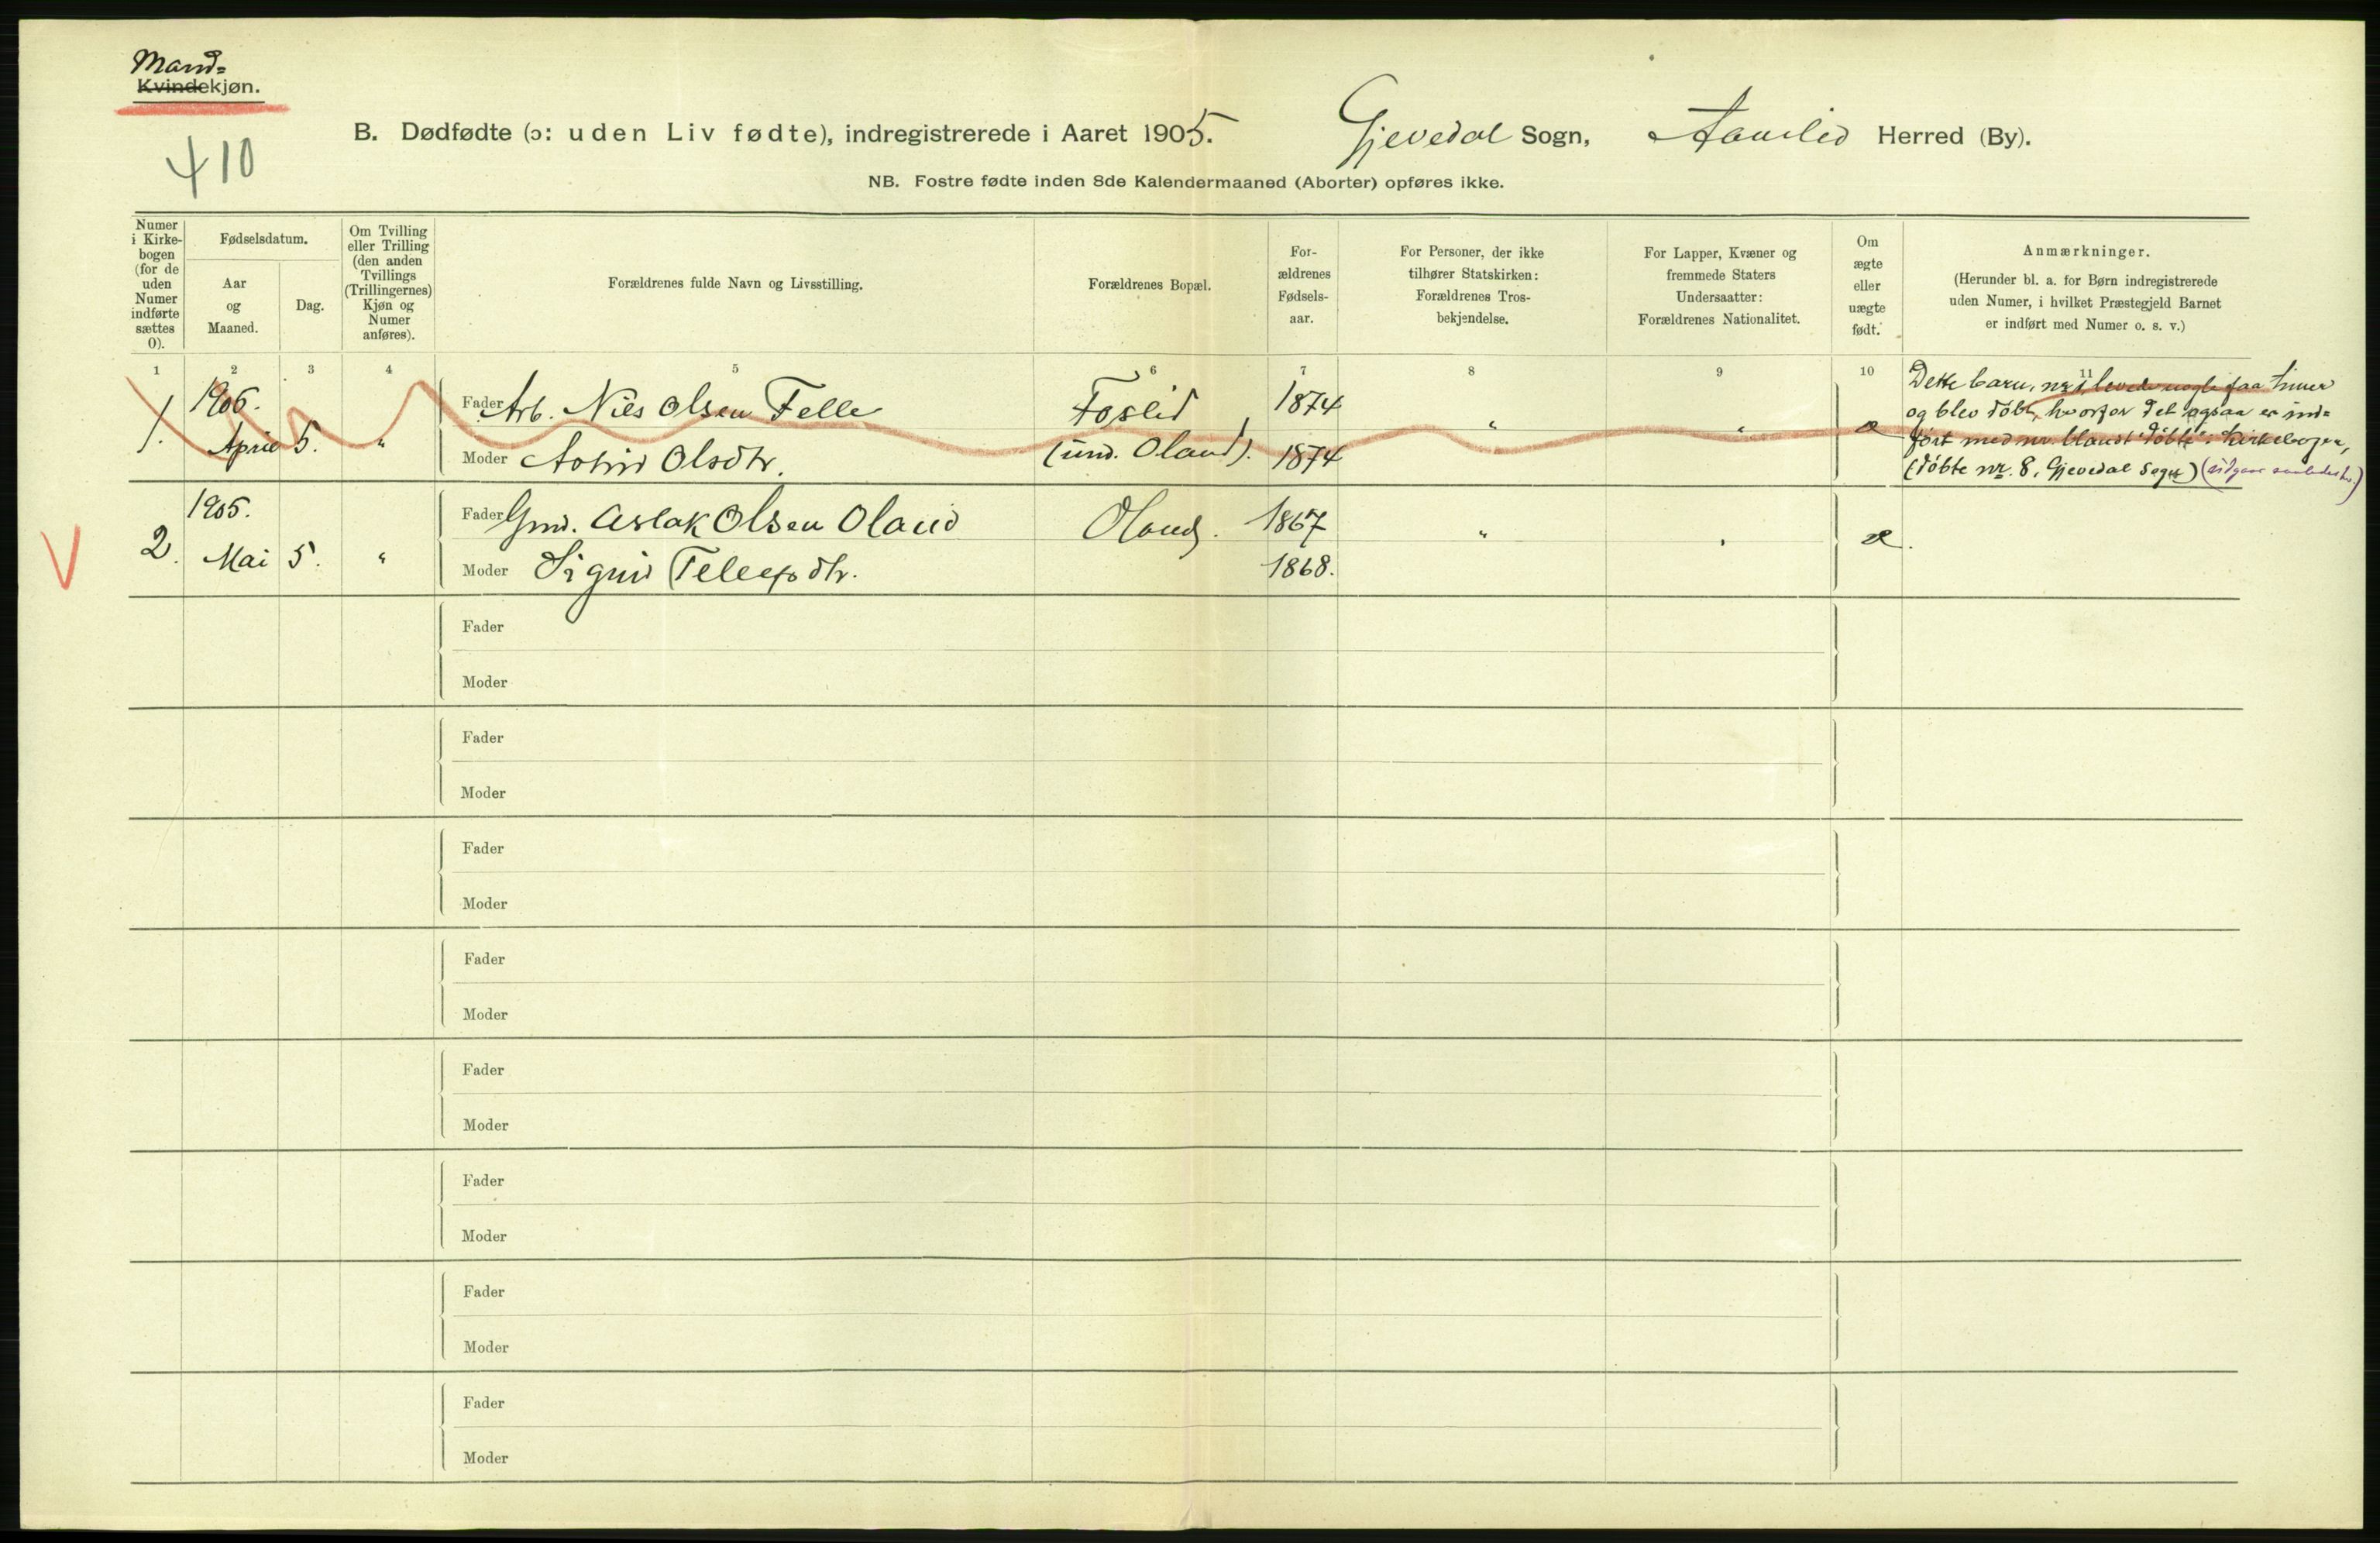 Mand=
Kvindekjøn.
410
B. Dødfødte (ɔ: uden Liv fødte), indregistrerede i Aaret 1905. Gjevedal Sogn, Aamlid Herred (By).
NB. Fostre fødte inden 8de Kalendermaaned (Aborter) opføres ikke.
Numer i Kirke-bogen (for de uden Numer indførte sættes 0).
Fødselsdatum.
Aar og Maaned.
Dag.
Om Tvilling eller Trilling (den anden Tvillings (Trillingernes) Kjøn og Numer anføres).
Forældrenes fulde Navn og Livsstilling.
Forældrenes Bopæl.
For-ældrenes Fødsels-aar.
For Personer, der ikke tilhører Statskirken: Forældrenes Tros-bekjendelse.
For Lapper, Kvæner og fremmede Staters Undersaatter: Forældrenes Nationalitet.
Om ægte eller uægte født.
Anmærkninger.
(Herunder bl. a. for Børn indregistrerede uden Numer, i hvilket Præstegjeld Barnet er indført med Numer o. s. v.)
1 2 3 4 5 6 7 8 9 10 11
1. 1905. April 5. "
Fader Arb. Nils Olsen Felle Foslid 1874 " " æ
Moder Astrid Olsdtr. (und. Oland). 1874
Dette barn, nr 1, levede nogle faa timer
og blev døbt, hvorfor det ogsaa er ind=
ført med nr. blandt "døbte" i kirkebogen,
(døbte nr. 8, Gjevedal Sogn)
2. 1905. Mai 5. "
Fader Gmd. Aslak Olsen Oland Oland. 1867 " " æ.
Moder Sigrid Tellefsdtr. 1868.
Fader
Moder
Fader
Moder
Fader
Moder
Fader
Moder
Fader
Moder
Fader
Moder
Fader
Moder
Fader
Moder